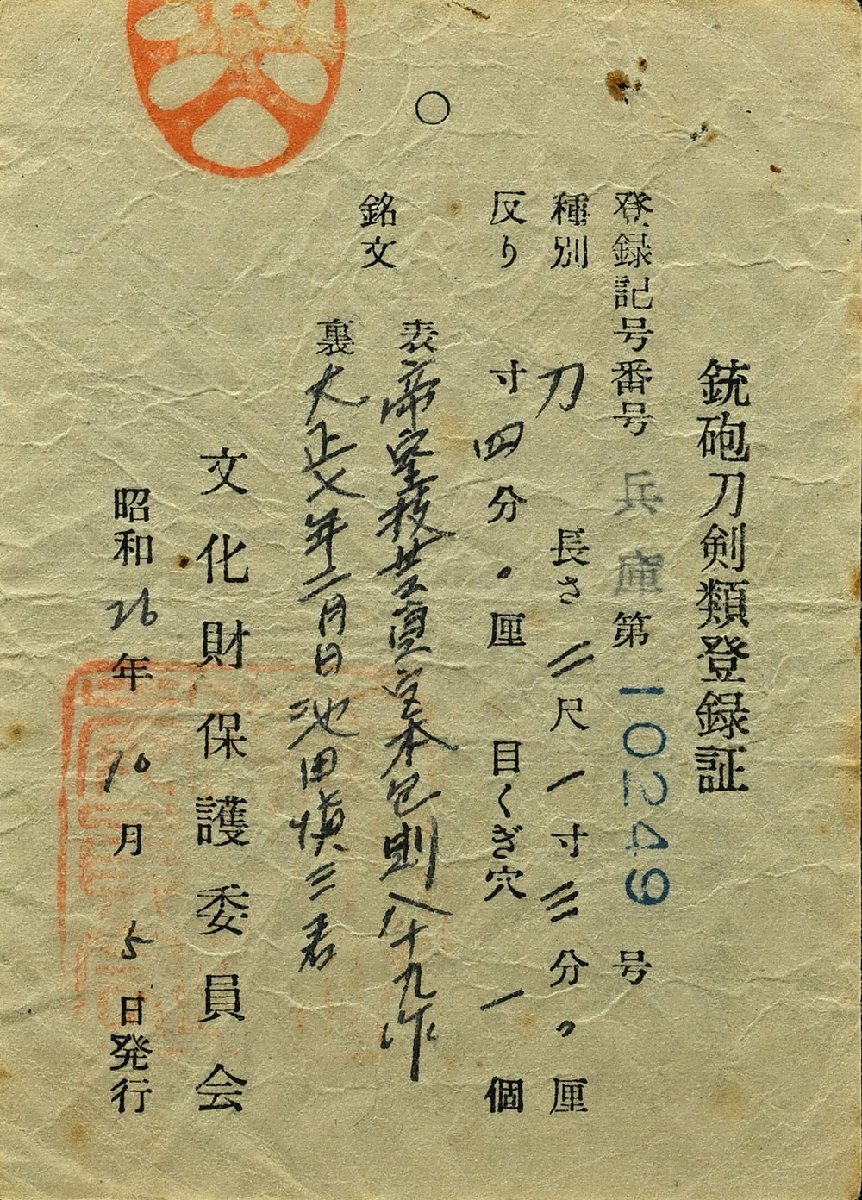 銃砲刀剣類登録証
登録記号番号 兵庫 第 10249 号
種別 刀 長さ 二尺一寸三分〇厘
反り 寸四分〇厘 目くぎ穴 一個
銘文
表 帝室技芸員宮本包則八十九作
裏 大正七年二月日池田慎三君
文化財保護委員会
昭和26年10月5日発行